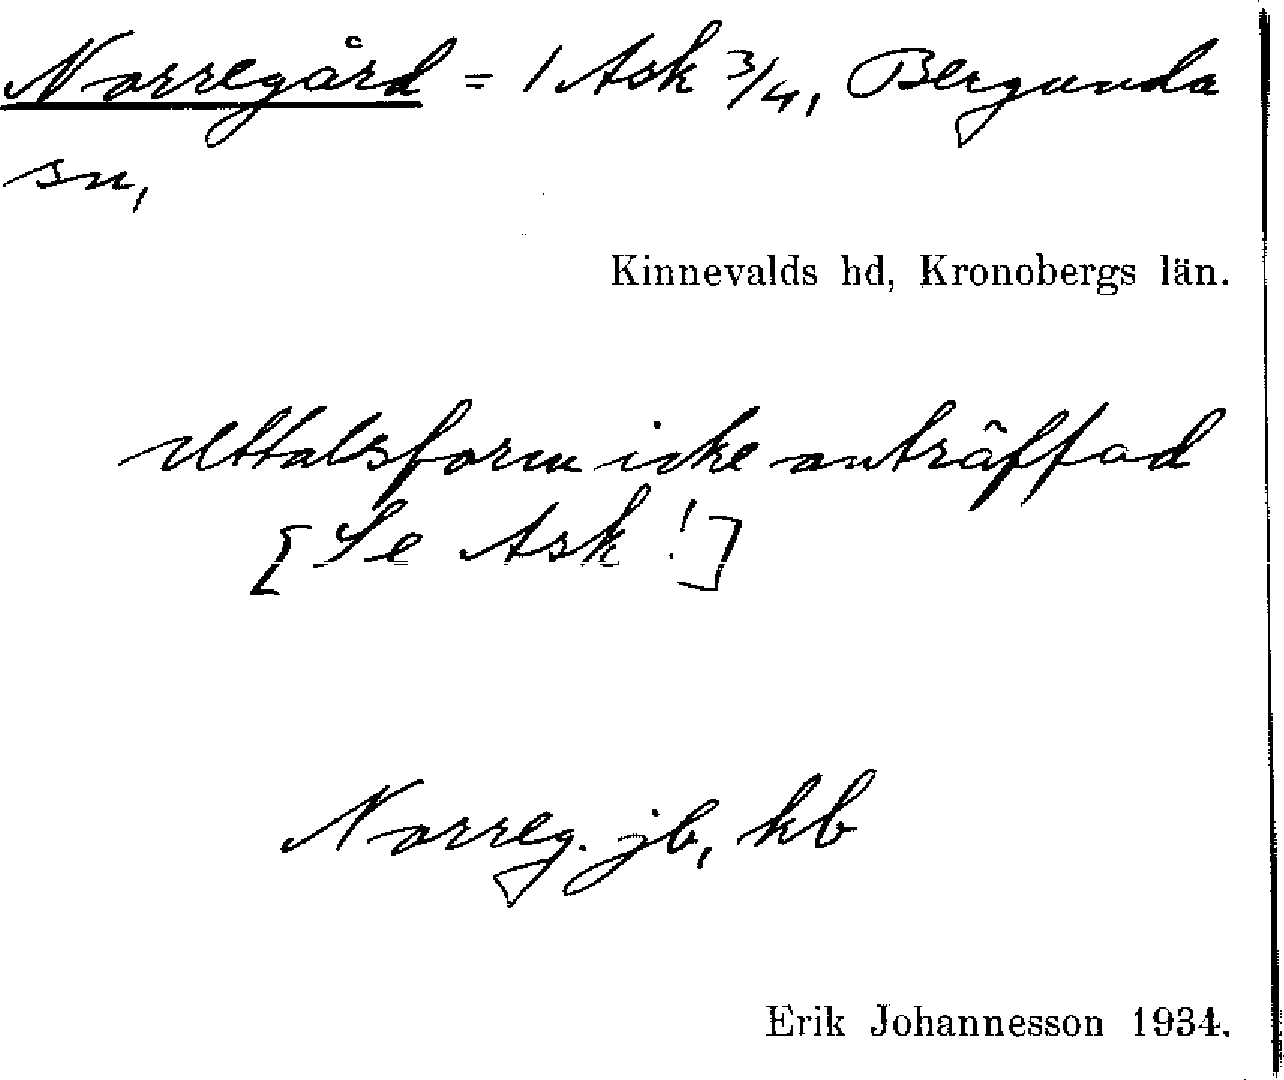 Norregård = 1 Ask 3/4, Bergunda
sn,
Kinnevalds hd, Kronobergs län.
Uttalsform icke anträffad
[Se Ask!]
Norreg. jb, kb
Erik Johannesson 1934.